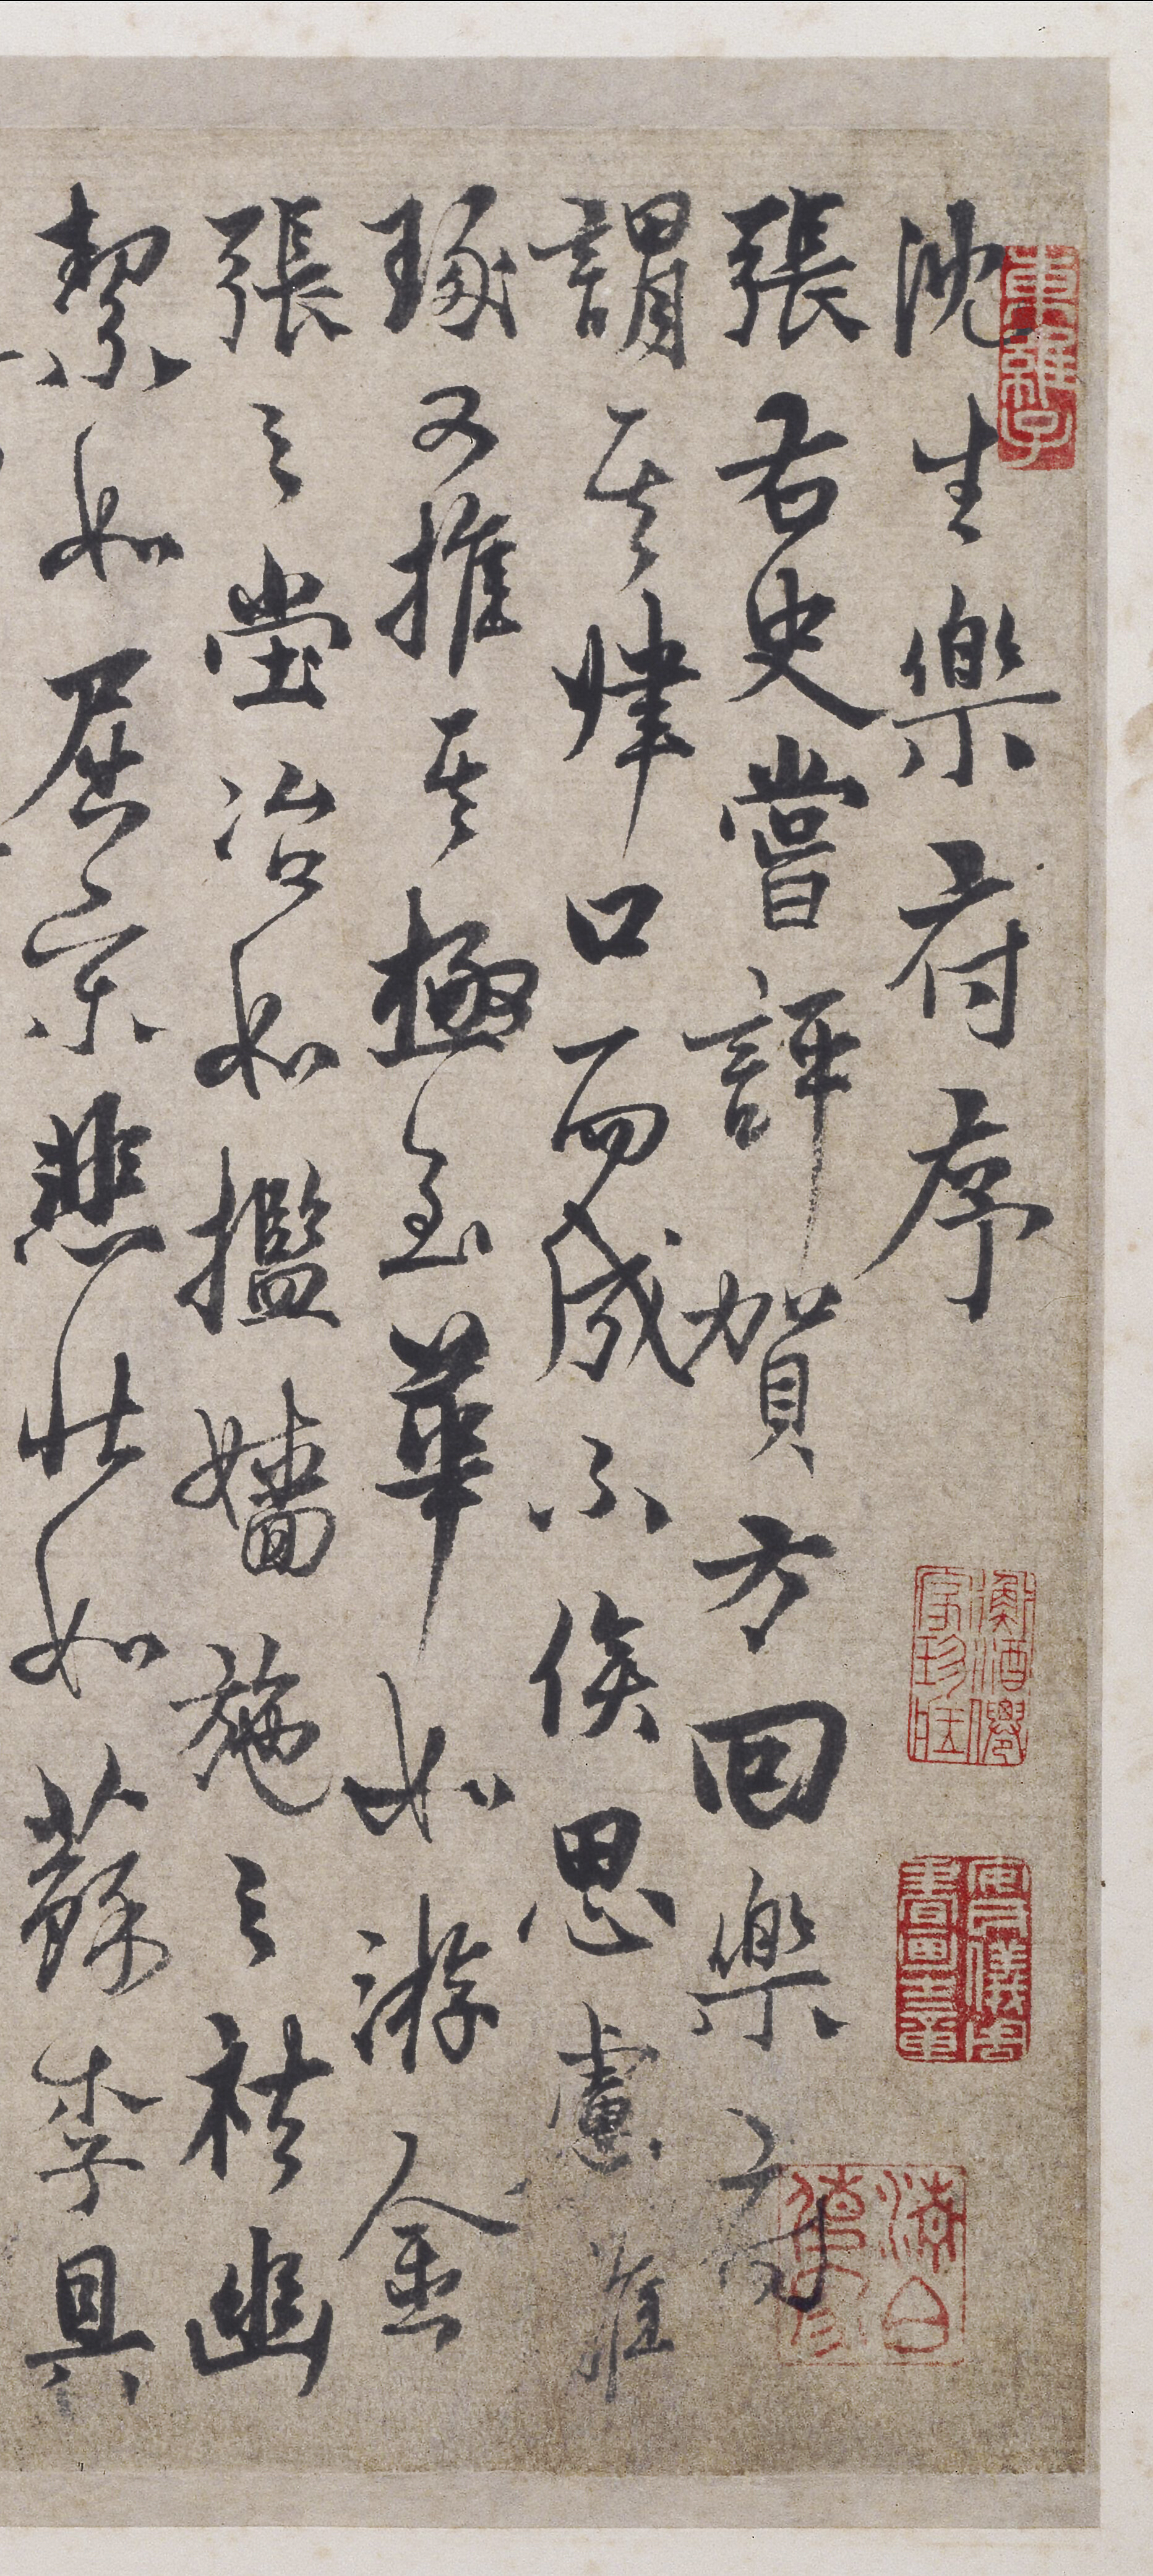 沈生樂府序
張右史嘗評賀方回樂府
謂其肆口而成不俟思慮雕
琢又推其極至華如游金
張之堂冶如攬嬙施之袪幽
絜如屈宋悲壯如蘇李具